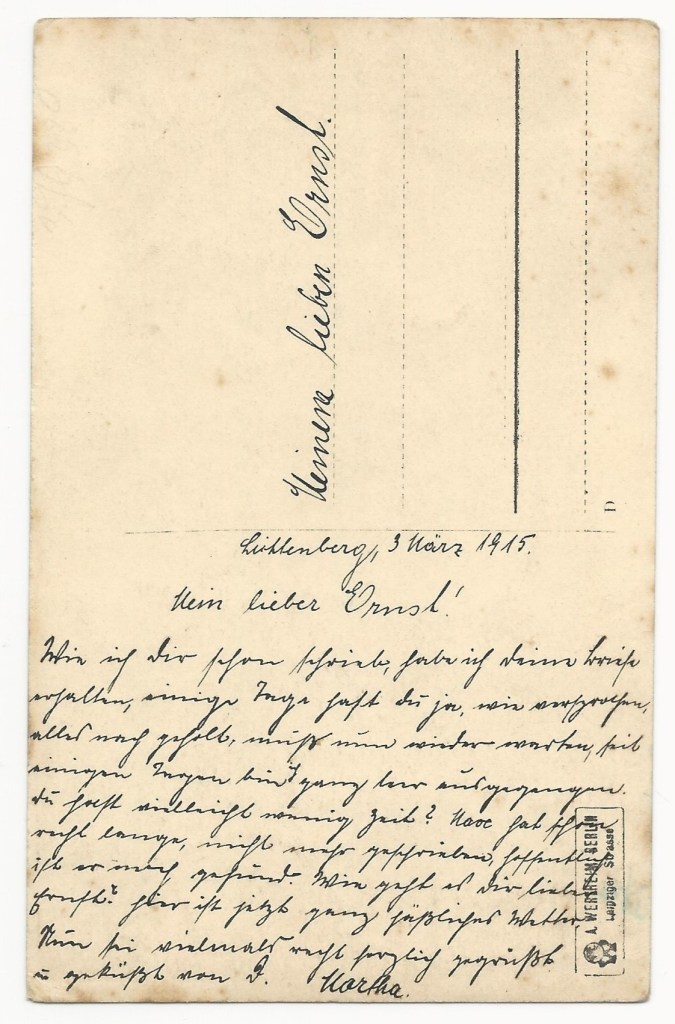 Meinem lieben Ernst.
D
Lichtenberg, 3 März 1915.
Mein lieber Ernst!
Wie ich dir schon schrieb, habe ich deine Briefe
erhalten, einige Tage hast du ja, wie versprochen,
alles nach geholt, muß nun wieder warten, seit
einigen Tagen bin ich ganz leer ausgegangen.
du hast vielleicht wenig Zeit? hat schon
recht lange, nicht mehr geschrieben, hoffentlich
ist er noch gesund. Wie geht es dir lieber
Ernst? hier ist jetzt ganz häßliches Wetter
Nun sei vielmals recht herzlich gegrüßt
u geküßt von D. Martha.
A. WERTHEIM BERLIN
Leipziger Strasse